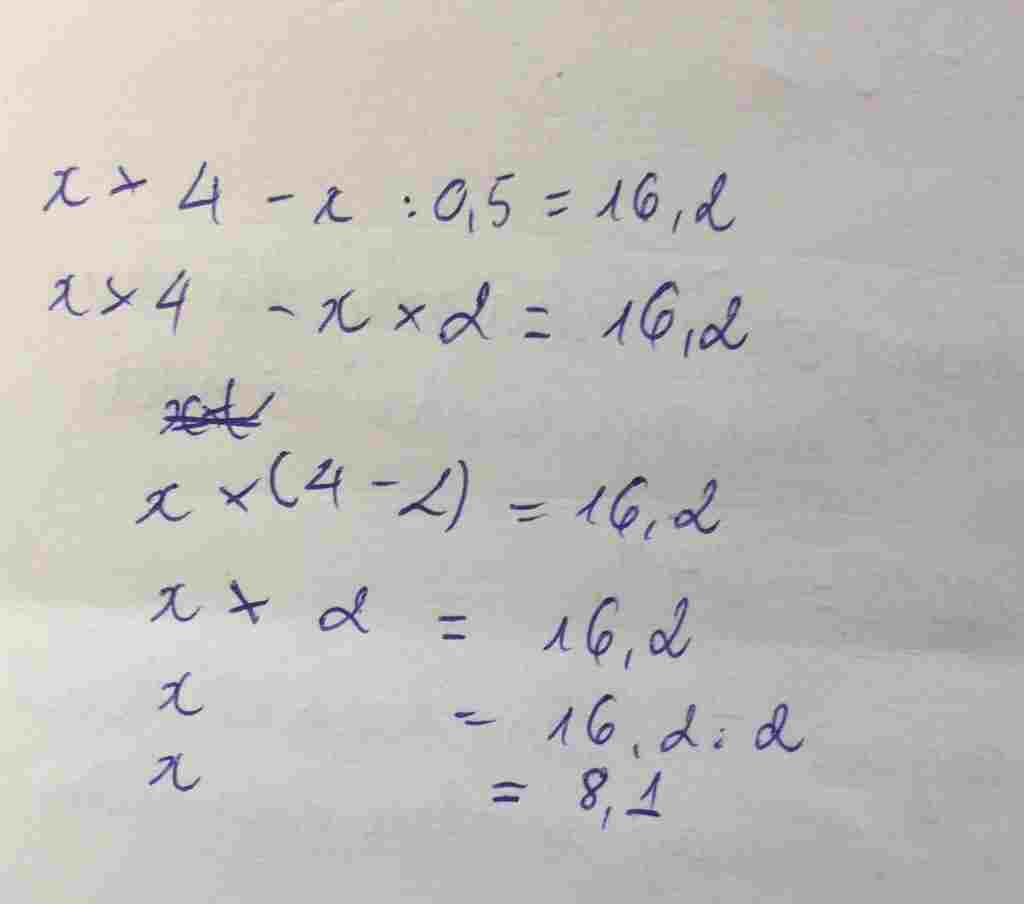 x × 4 - x : 0,5 = 16,2
x × 4 - x × 2 = 16,2
x × (4 - 2) = 16,2
x × 2 = 16,2
x = 16,2 : 2
x = 8,1